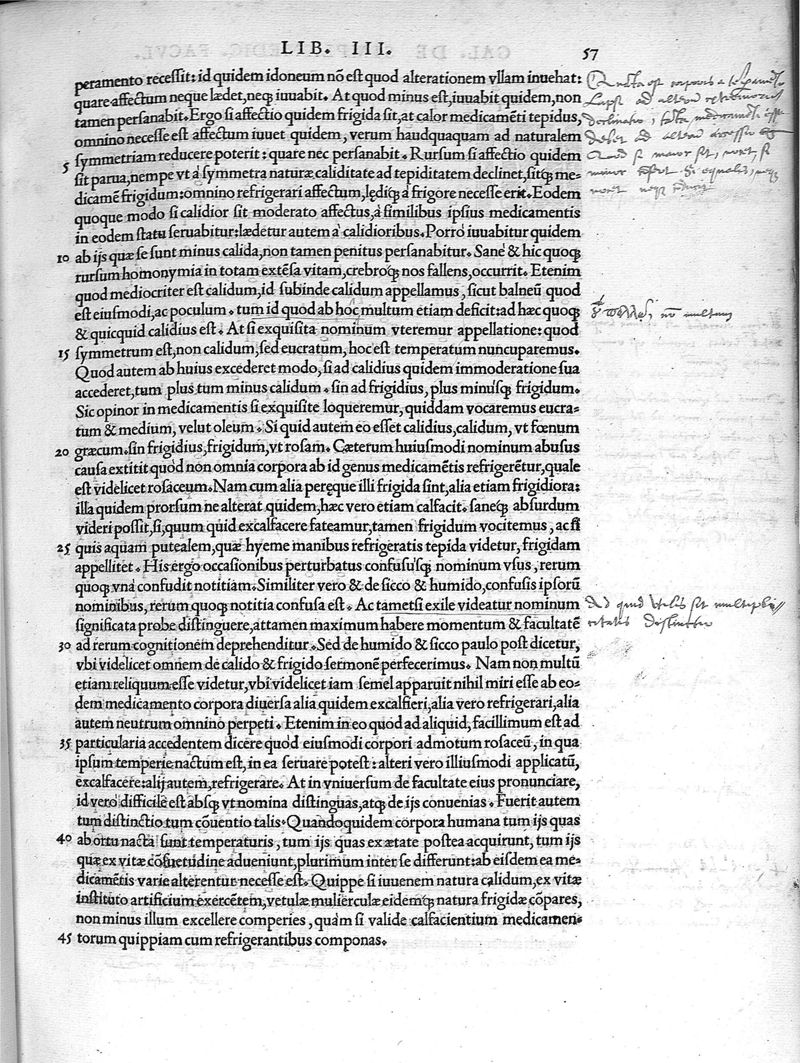 LIB. III. 57
peramento recessit: id quidem idoneum nō est quod alterationem vllam inuehat:
quare affectum neque lædet, neq; iuuabit. At quod minus est, iuuabit quidem, non
tamen persanabit. Ergo si affectio quidem frigida sit, at calor medicamēti tepidus,
omnino necesse est affectum iuuet quidem, verum haudquaquam ad naturalem
5 symmetriam reducere poterit: quare nec persanabit. Rursum si affectio quidem
sit parua, nempe vt à symmetra naturæ caliditate ad tepiditatem declinet, sitq; me-
dicamē frigidum: omnino refrigerari affectum, lędiq; à frigore necesse erit. Eodem
quoque modo si calidior sit moderato affectus, à similibus ipsius medicamentis
in eodem statu seruabitur: lædetur autem à calidioribus. Porrò iuuabitur quidem
10 ab ijs quæ se sunt minus calida, non tamen penitus persanabitur. Sanè & hic quoq;
rursum homonymia in totam extēsa vitam, crebroq; nos fallens, occurrit. Etenim
quod mediocriter est calidum, id subinde calidum appellamus, sicut balneū quod
est eiusmodi, ac poculum. tum id quod ab hoc multum etiam deficit: ad hæc quoq;
& quicquid calidius est. At si exquisita nominum vteremur appellatione: quod
15 symmetrum est, non calidum, sed eucratum, hoc est temperatum nuncuparemus.
Quod autem ab huius excederet modo, si ad calidius quidem immoderatione sua
accederet, tum plus tum minus calidum. sin ad frigidius, plus minusq; frigidum.
Sic opinor in medicamentis si exquisite loqueremur, quiddam vocaremus eucra-
tum & medium, velut oleum. Si quid autem eo esset calidius, calidum, vt fœnum
20 græcum. sin frigidius, frigidum, vt rosam. Cæterum huiusmodi nominum abusus
causa extitit quòd non omnia corpora ab id genus medicamētis refrigerētur, quale
est videlicet rosaceum. Nam cum alia peręque illi frigida sint, alia etiam frigidiora:
illa quidem prorsum ne alterat quidem, hæc vero etiam calfacit. saneq; absurdum
videri possit, si, quum quid excalfacere fateamur, tamen frigidum vocitemus, ac si
25 quis aquam putealem, quæ hyeme manibus refrigeratis tepida videtur, frigidam
appellitet. His ergo occasionibus perturbatus confususq; nominum vsus, rerum
quoq; vnà confudit notitiam. Similiter vero & de sicco & humido, confusis ipsorū
nominibus, rerum quoq; notitia confusa est. Ac tametsi exile videatur nominum
significata probe distinguere, attamen maximum habere momentum & facultatē
30 ad rerum cognitionem deprehenditur. Sed de humido & sicco paulo post dicetur,
vbi videlicet omnem de calido & frigido sermonē perfecerimus. Nam non multū
etiam reliquum esse videtur, vbi videlicet iam semel apparuit nihil miri esse ab eo-
dem medicamento corpora diuersa alia quidem excalfieri, alia vero refrigerari, alia
autem neutrum omnino perpeti. Etenim in eo quòd ad aliquid, facillimum est ad
35 particularia accedentem dicere quòd eiusmodi corpori admotum rosaceū, in qua
ipsum temperie nactum est, in ea seruare potest: alteri vero illiusmodi applicatū,
excalfacere: alij autem, refrigerare. At in vniuersum de facultate eius pronunciare,
id vero difficile est absq; vt nomina distinguas, atq; de ijs conuenias. Fuerit autem
tum distinctio tum cōuentio talis. Quandoquidem corpora humana tum ijs quas
40 ab ortu nacta sunt temperaturis, tum ijs quas ex ætate postea acquirunt, tum ijs
quæ ex vitæ cōsuetudine adueniunt, plurimum inter se differunt: ab eisdem ea me-
dicamētis varie alterentur necesse est. Quippe si iuuenem natura calidum, ex vitæ
instituto artificium exercētem, vetulæ mulierculæ eidemq; natura frigidæ cōpares,
non minus illum excellere comperies, quàm si valide calfacientium medicamen-
45 torum quippiam cum refrigerantibus componas.
nō multum
Ad quid vtilis sit multipli-
citatis distinctio